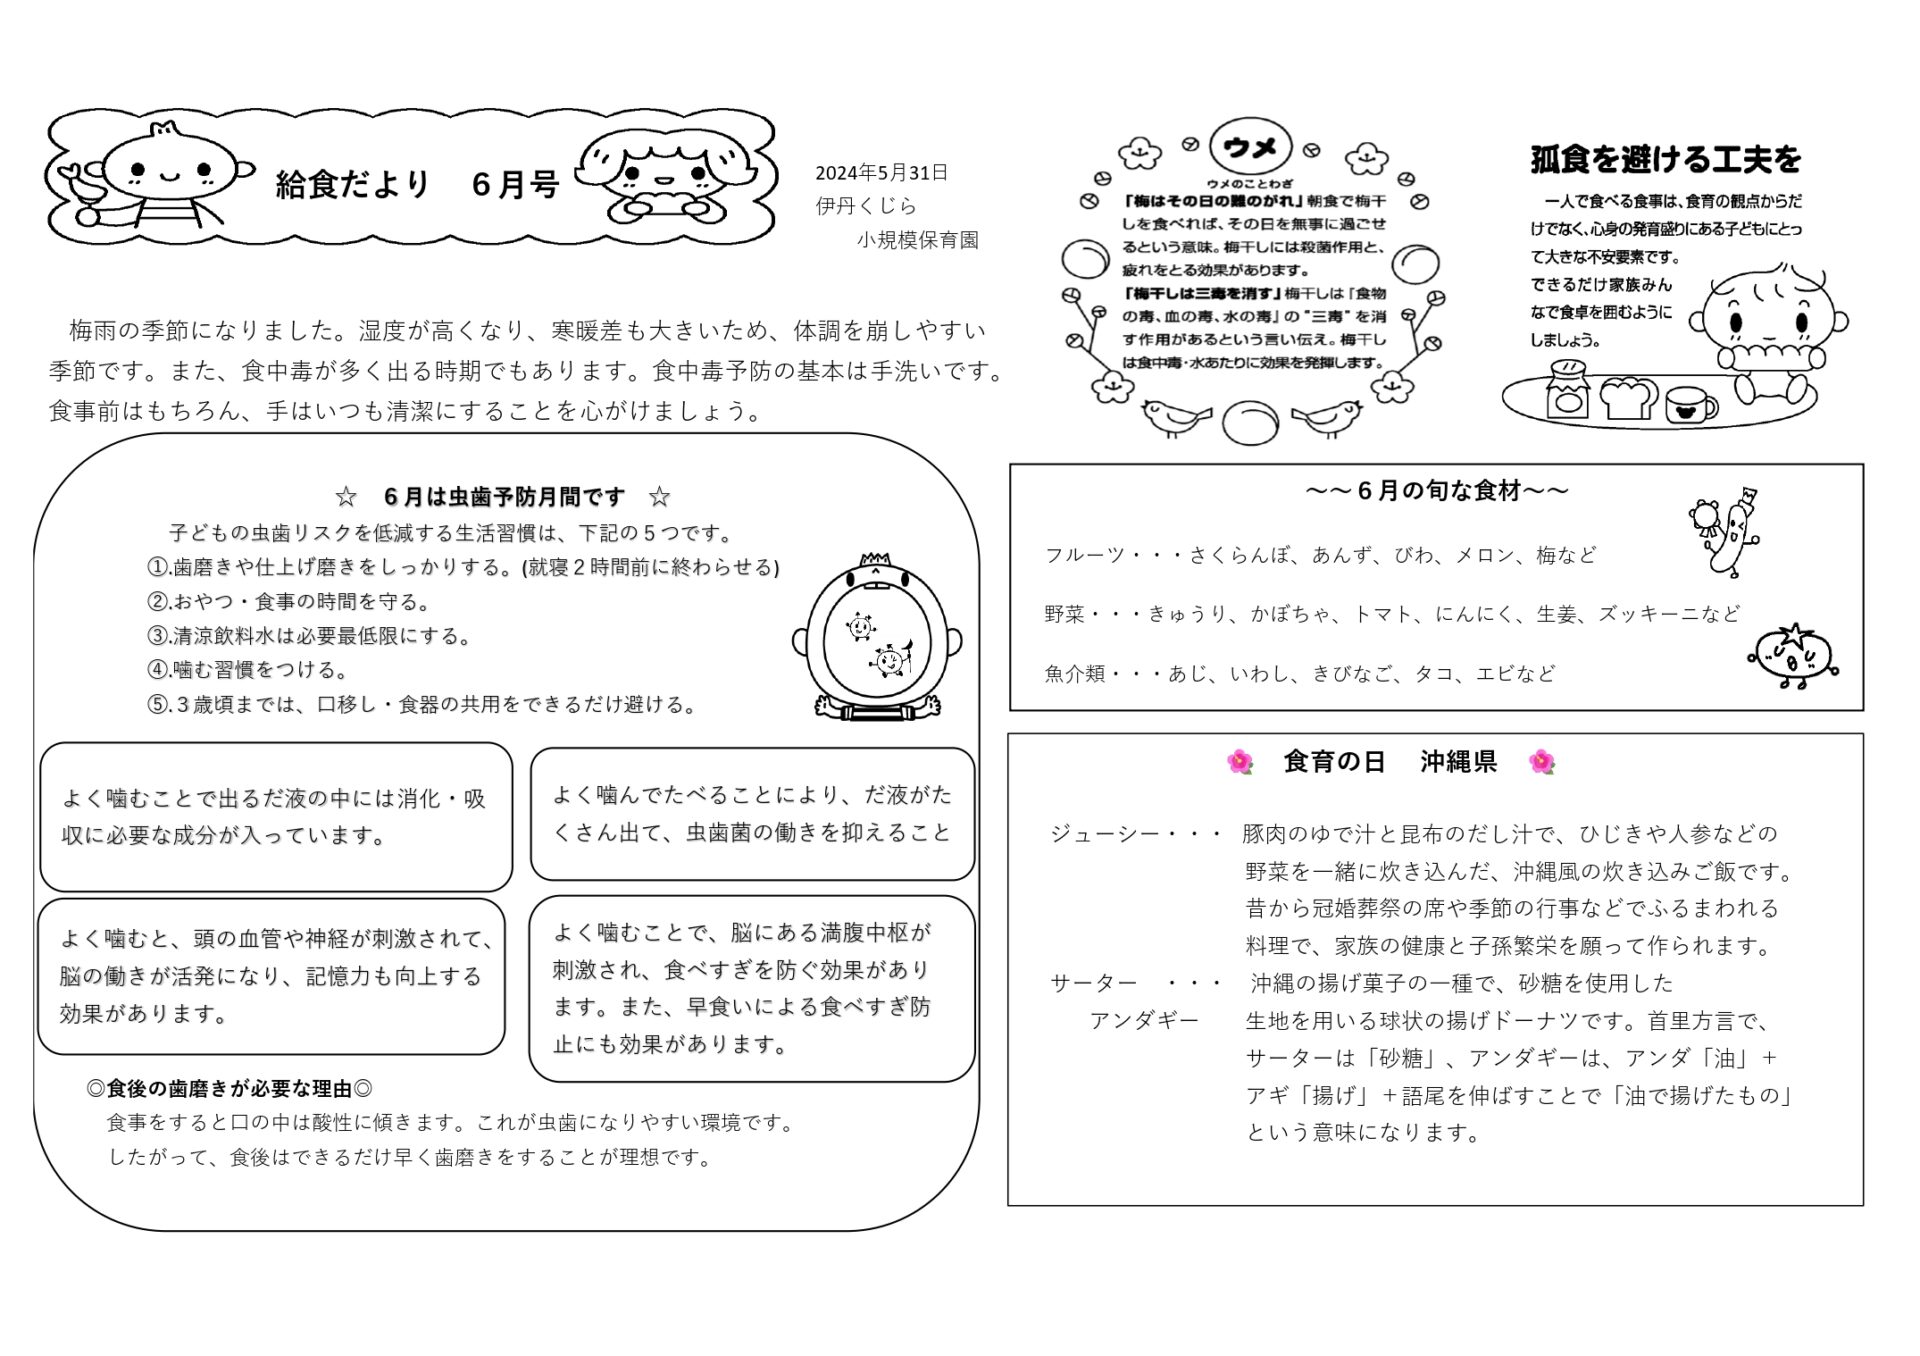 給食だより　６月号
2024年5月31日
伊丹くじら
小規模保育園
梅雨の季節になりました。湿度が高くなり、寒暖差も大きいため、体調を崩しやすい
季節です。また、食中毒が多く出る時期でもあります。食中毒予防の基本は手洗いです。
食事前はもちろん、手はいつも清潔にすることを心がけましょう。
☆　６月は虫歯予防月間です　☆
子どもの虫歯リスクを低減する生活習慣は、下記の５つです。
①.歯磨きや仕上げ磨きをしっかりする。(就寝２時間前に終わらせる)
②.おやつ・食事の時間を守る。
③.清涼飲料水は必要最低限にする。
④.噛む習慣をつける。
⑤.３歳頃までは、口移し・食器の共用をできるだけ避ける。
よく噛むことで出るだ液の中には消化・吸
収に必要な成分が入っています。
よく噛んでたべることにより、だ液がた
くさん出て、虫歯菌の働きを抑えること
よく噛むと、頭の血管や神経が刺激されて、
脳の働きが活発になり、記憶力も向上する
効果があります。
よく噛むことで、脳にある満腹中枢が
刺激され、食べすぎを防ぐ効果があり
ます。また、早食いによる食べすぎ防
止にも効果があります。
◎食後の歯磨きが必要な理由◎
食事をすると口の中は酸性に傾きます。これが虫歯になりやすい環境です。
したがって、食後はできるだけ早く歯磨きをすることが理想です。
ウメ
ウメのことわざ
「梅はその日の難のがれ」朝食で梅干
しを食べれば、その日を無事に過ごせ
るという意味。梅干しには殺菌作用と、
疲れをとる効果があります。
「梅干しは三毒を消す」梅干しは「食物
の毒、血の毒、水の毒」の"三毒"を消
す作用があるという言い伝え。梅干し
は食中毒・水あたりに効果を発揮します。
孤食を避ける工夫を
一人で食べる食事は、食育の観点からだ
けでなく、心身の発育盛りにある子どもにとっ
て大きな不安要素です。
できるだけ家族みん
なで食卓を囲むように
しましょう。
～～６月の旬な食材～～
フルーツ・・・さくらんぼ、あんず、びわ、メロン、梅など
野菜・・・きゅうり、かぼちゃ、トマト、にんにく、生姜、ズッキーニなど
魚介類・・・あじ、いわし、きびなご、タコ、エビなど
食育の日　沖縄県
ジューシー・・・　豚肉のゆで汁と昆布のだし汁で、ひじきや人参などの
野菜を一緒に炊き込んだ、沖縄風の炊き込みご飯です。
昔から冠婚葬祭の席や季節の行事などでふるまわれる
料理で、家族の健康と子孫繁栄を願って作られます。
サーター　・・・　沖縄の揚げ菓子の一種で、砂糖を使用した
アンダギー　生地を用いる球状の揚げドーナツです。首里方言で、
サーターは「砂糖」、アンダギーは、アンダ「油」＋
アギ「揚げ」＋語尾を伸ばすことで「油で揚げたもの」
という意味になります。